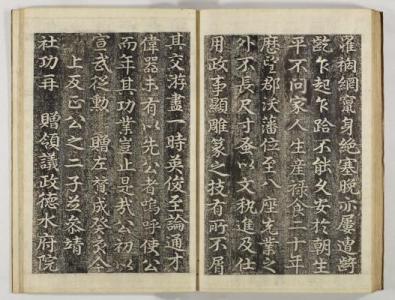 罹禍網竄身絶塞晚亦屢遭齮
齕乍起乍跲不能久安於朝生
平不問家人生産禄食二十年
歷登郡沃藩位至八座先業之
外不長尺寸蚤以文秇進及仕
用政事顯雕篆之技有所不屑
其交游盡一時英俊至論通才
偉器未有以先公者嗚呼使公
而年其功業豈止是哉公初以
宣武從勳 贈左贊成癸亥今
上反正公之二子並參靖
社功再 贈領議政德水府院